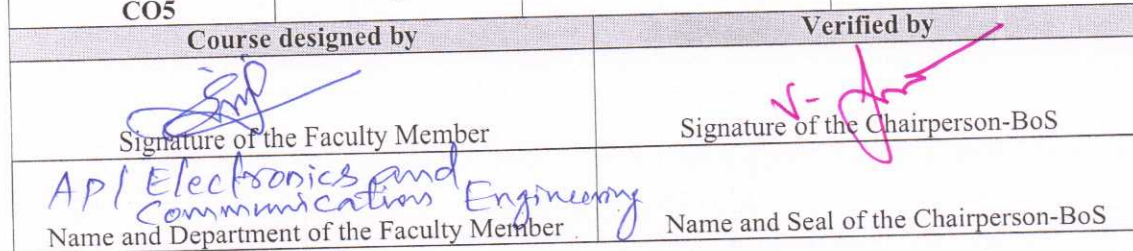 CO5
Course designed by
Verified by
V-
Signature of the Faculty Member
Signature of the Chairperson-BoS
AP/ Electronics and
Communications Engineering
Name and Department of the Faculty Member
Name and Seal of the Chairperson-BoS